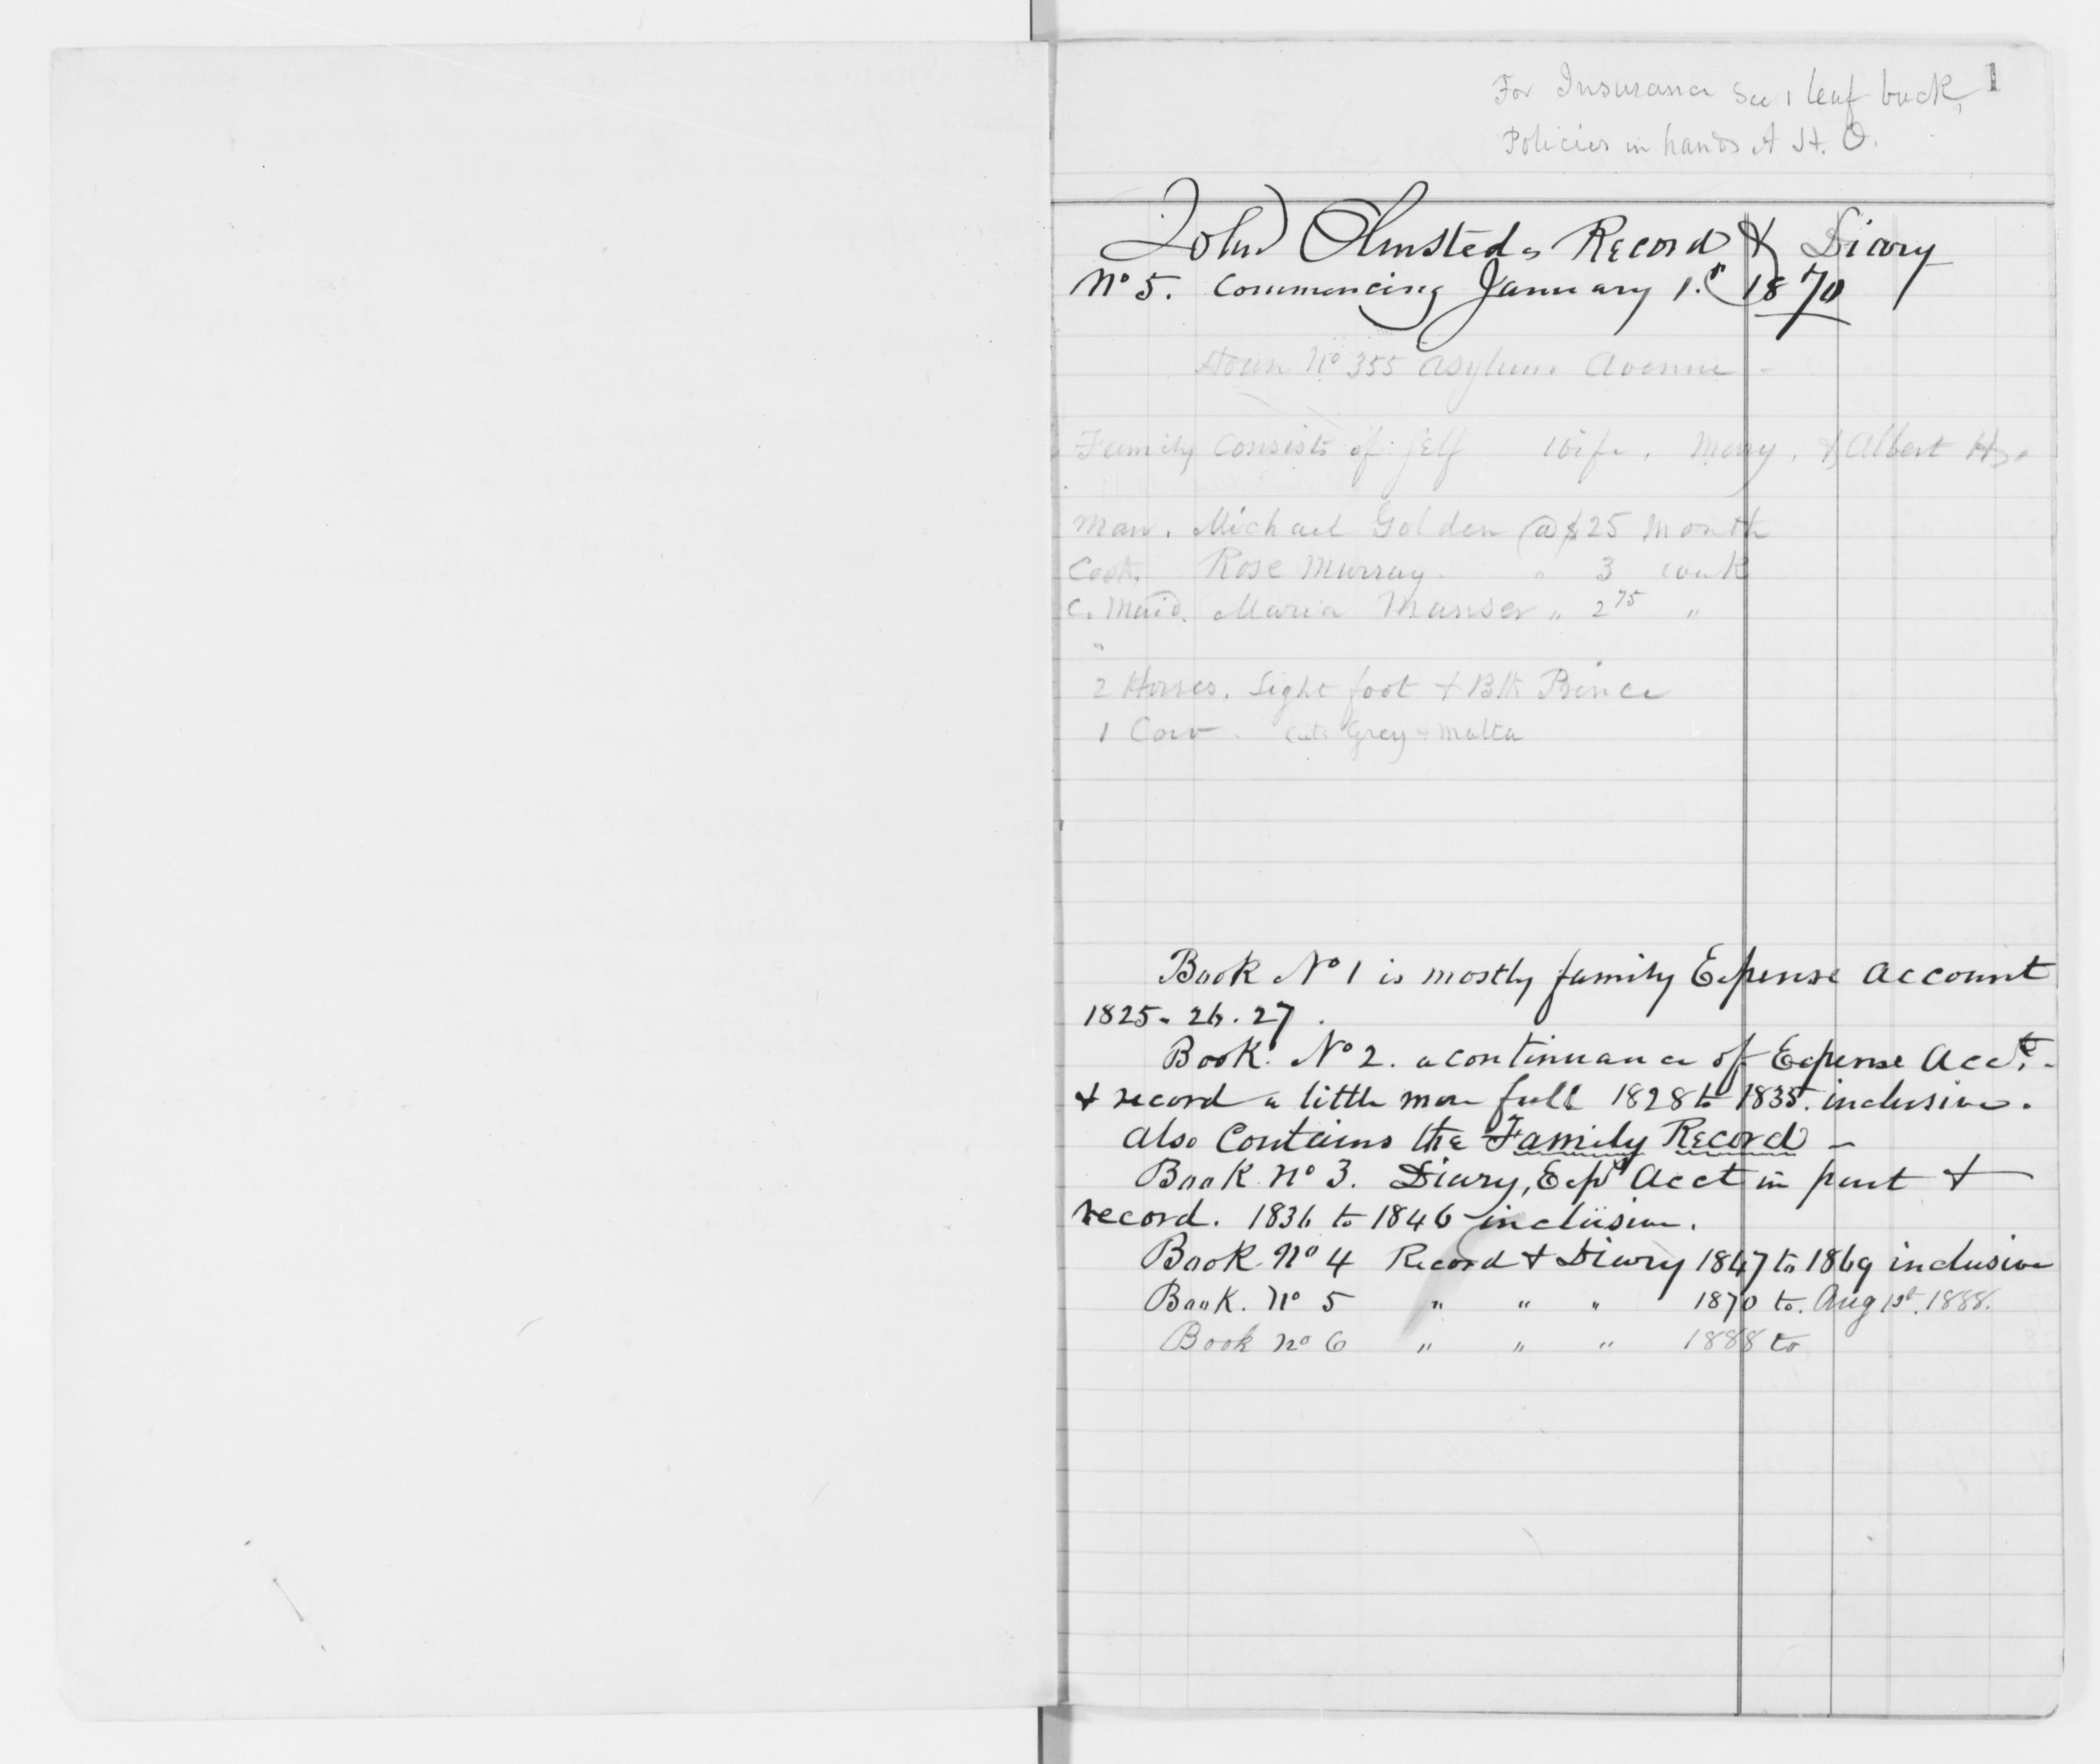 1
For Insurance See 1 leaf back,
Policies in hands A H. O.
John Olmsteds Record & Diary
No 5. Commencing January 1.st 1870
House No 355 Asylum Avenue -
Family Consists of Self Wife, Mary, & Albert H.
Man. Michael Golden @ $25 Month
Cook. Rose Murray. " 3 week
C. Maid. Maria Manser " 2 75 "
"
2 Horses. Light foot & Blk Prince
1 Cow - Cats Grey & Malta
Book No 1 is mostly family Expense Account
1825 - 26. 27.
Book No 2. a continuance of Expense Acct. -
& record a little more full 1828 to 1835. inclusive.
also Contains the Family Record -
Book No 3. Diary, Exp Acct in part &
record. 1836 to 1846 inclusive.
Book No 4 Record & Diary 1847 to 1869 inclusive
Book. No 5 " " " 1870 to. Aug 1888.
Book no 6 " " " 1888 to